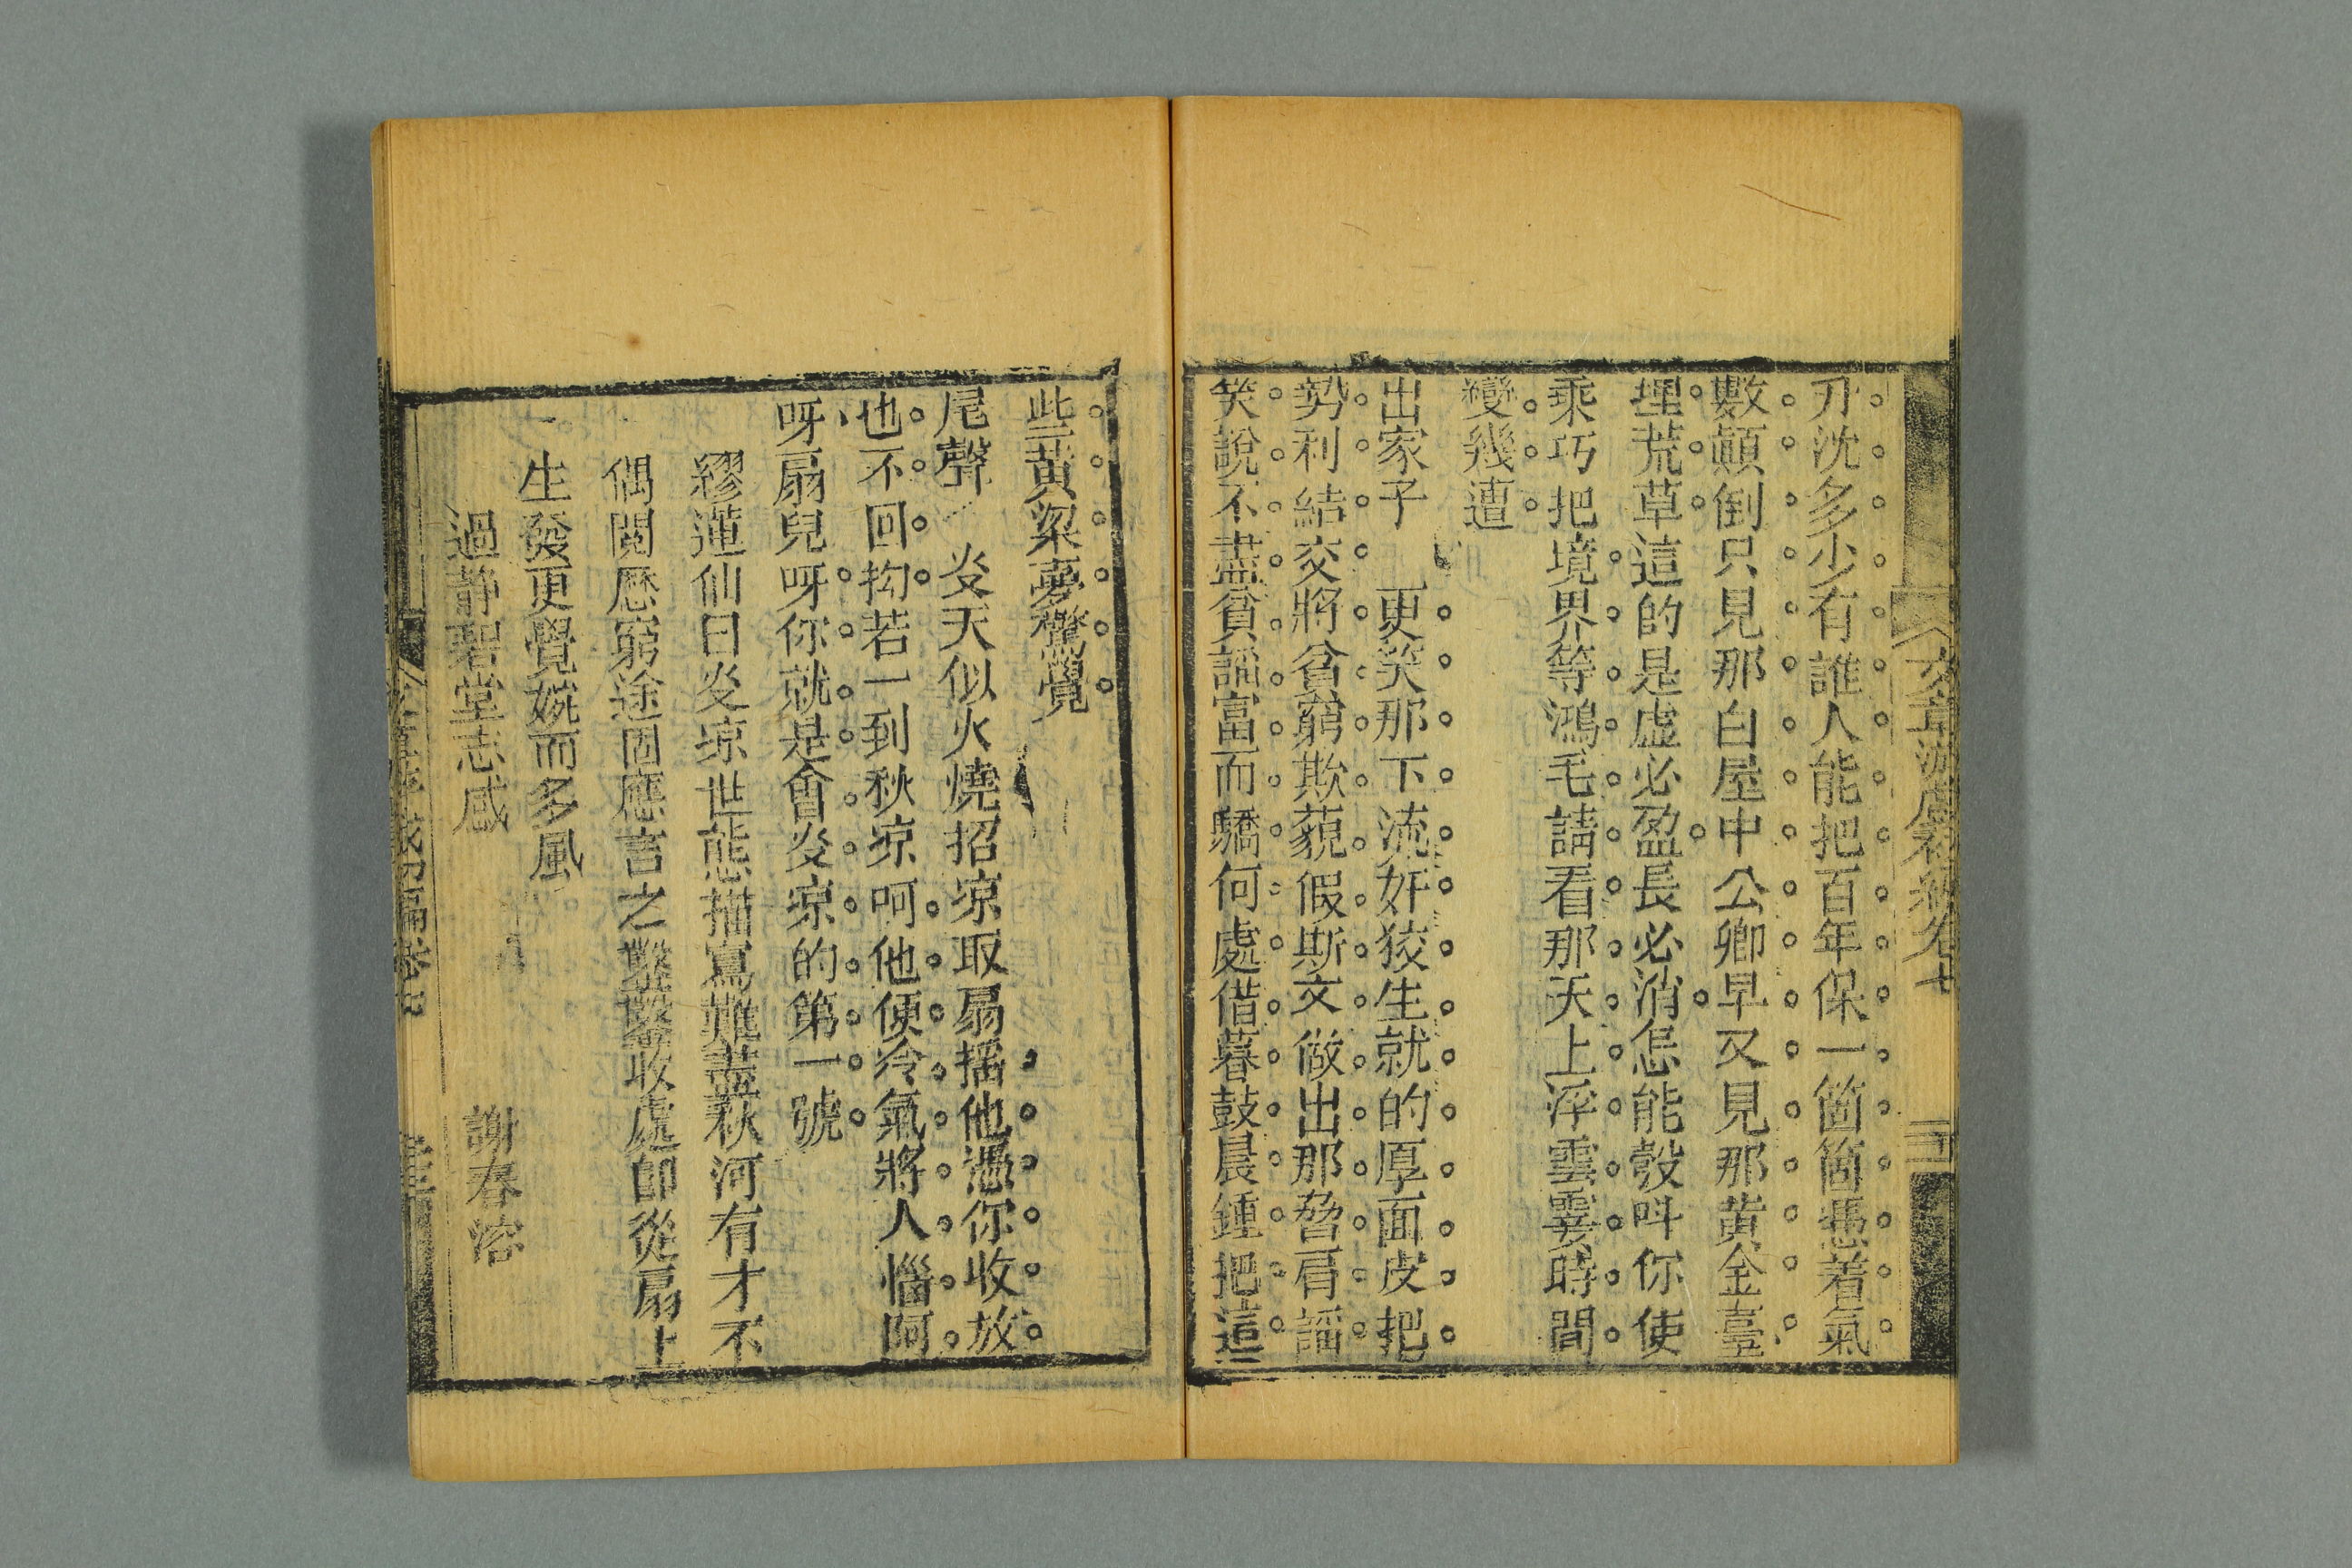 文章游戲初編卷七
升沈多少有誰人能把百年保一箇箇憑着氣
數顛倒只見那白屋中公卿早又見那黃金臺
埋荒草這的是虛必盈長必消怎能彀呌你使
乘巧把境界等鴻毛請看那天上浮雲霎時間
變幾遭
出家子 更笑那下流奸狡生就的厚面皮把
勢利結交將貧窮欺藐假斯文做出那脅肩諂
笑說不盡貧諂富而驕何處借暮鼓晨鍾把這
些黃粱夢驚覺
尾聲 炎天似火燒招凉取扇搖他憑你收放
也不回拗若一到秋凉呵他便冷氣將人惱阿
呀扇兒呀你就是會炎凉的第一號
繆蓮仙曰炎凉世態描寫難盡秋河有才不
偶閱歷窮途固應言之鑿鑿收處卽從扇上
生發更覺婉而多風
過靜碧堂志感 謝春溶
戲初編卷七